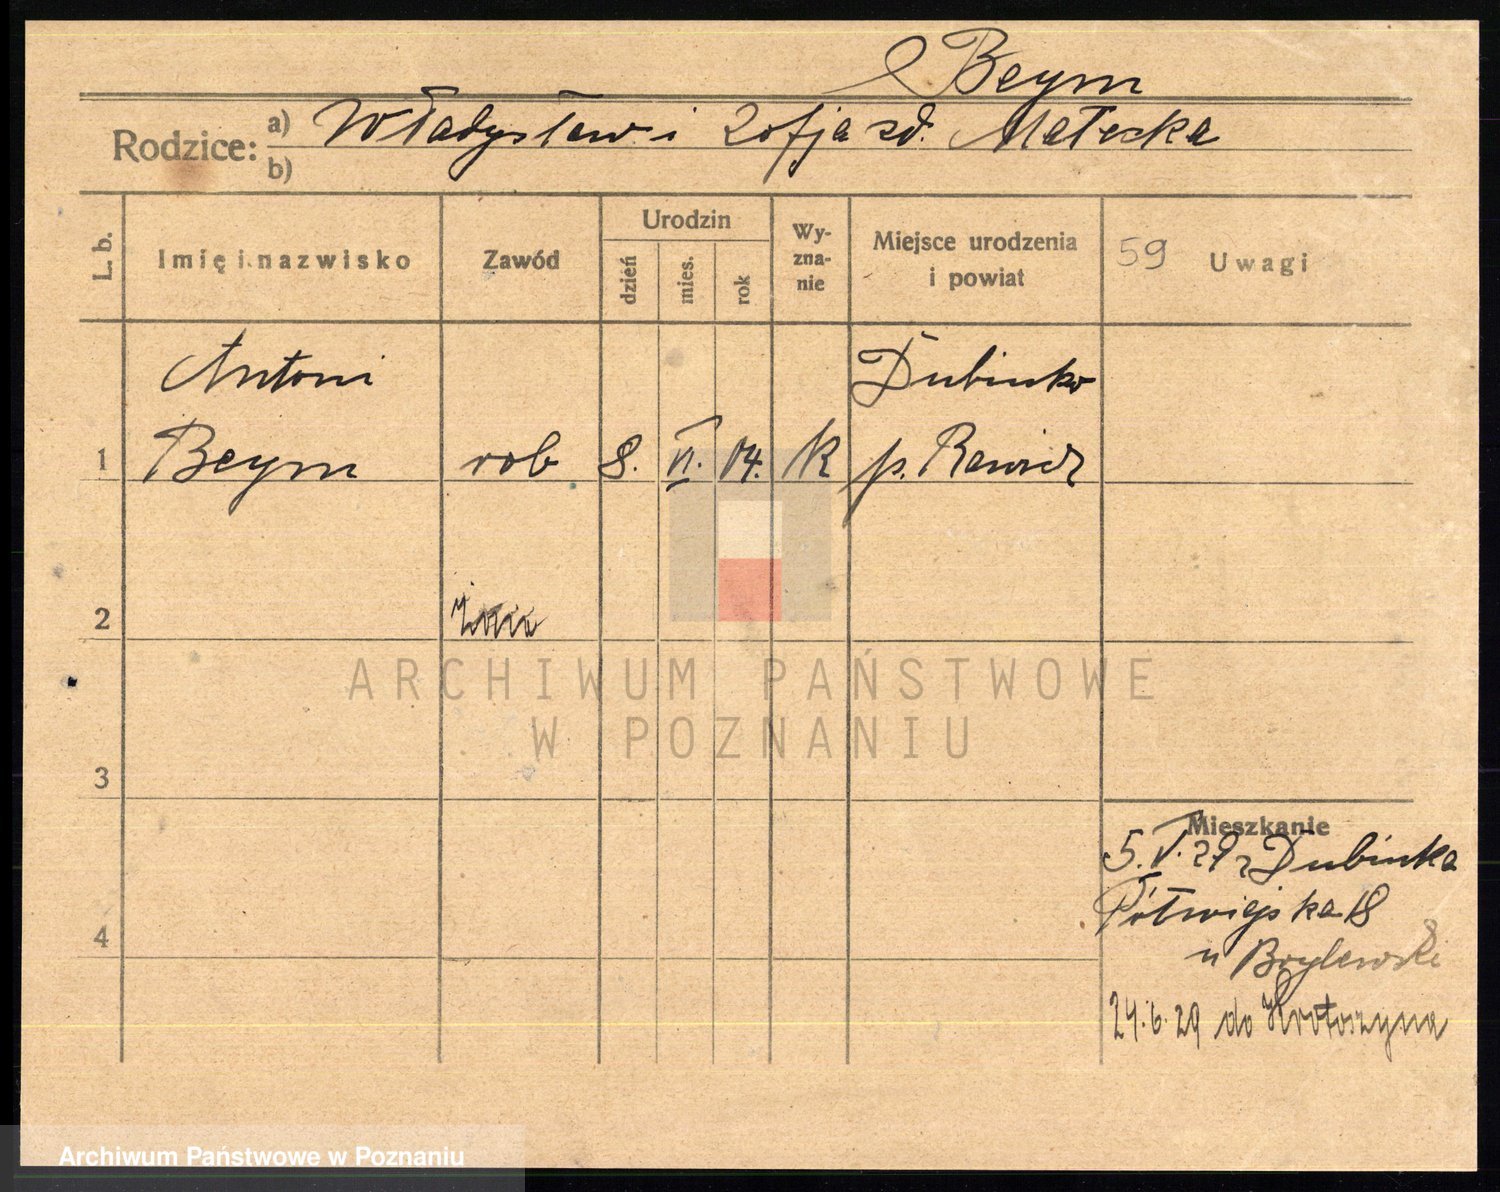 Beym
Rodzice: a) Władysław i Zofja zd. Małecka
b)
L. b.
Imię i nazwisko
Zawód
Urodzin
dzień
mies.
rok
Wy-
zna-
nie
Miejsce urodzenia
i powiat
59 Uwagi
Antoni Dubinko
1 Beym rob 8. VI. 04. K p. Rawicz
2
3
4
Mieszkanie
5.V.29 z Dubinka
Półwiejska 18
u Brylewski
24.6.29 do Krotoszyna
ARCHIWUM PAŃSTWOWE
W POZNANIU
Archiwum Państwowe w Poznaniu